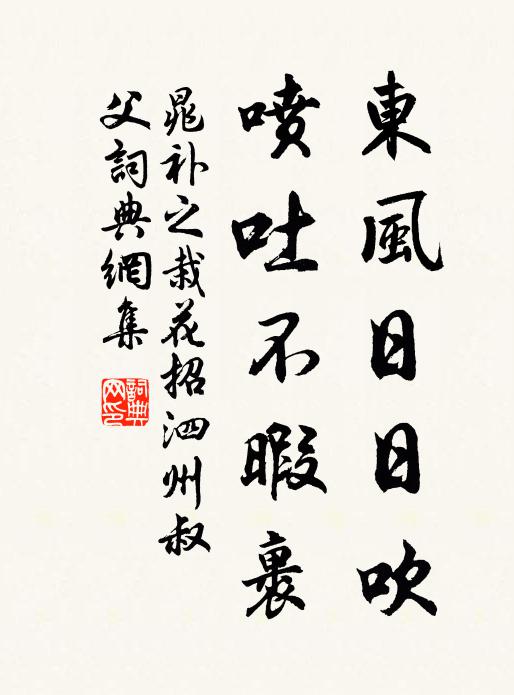 東風日日吹
噴吐不暇裹
晁补之栽花招泗州叔
父詞典網集
詞典
网印